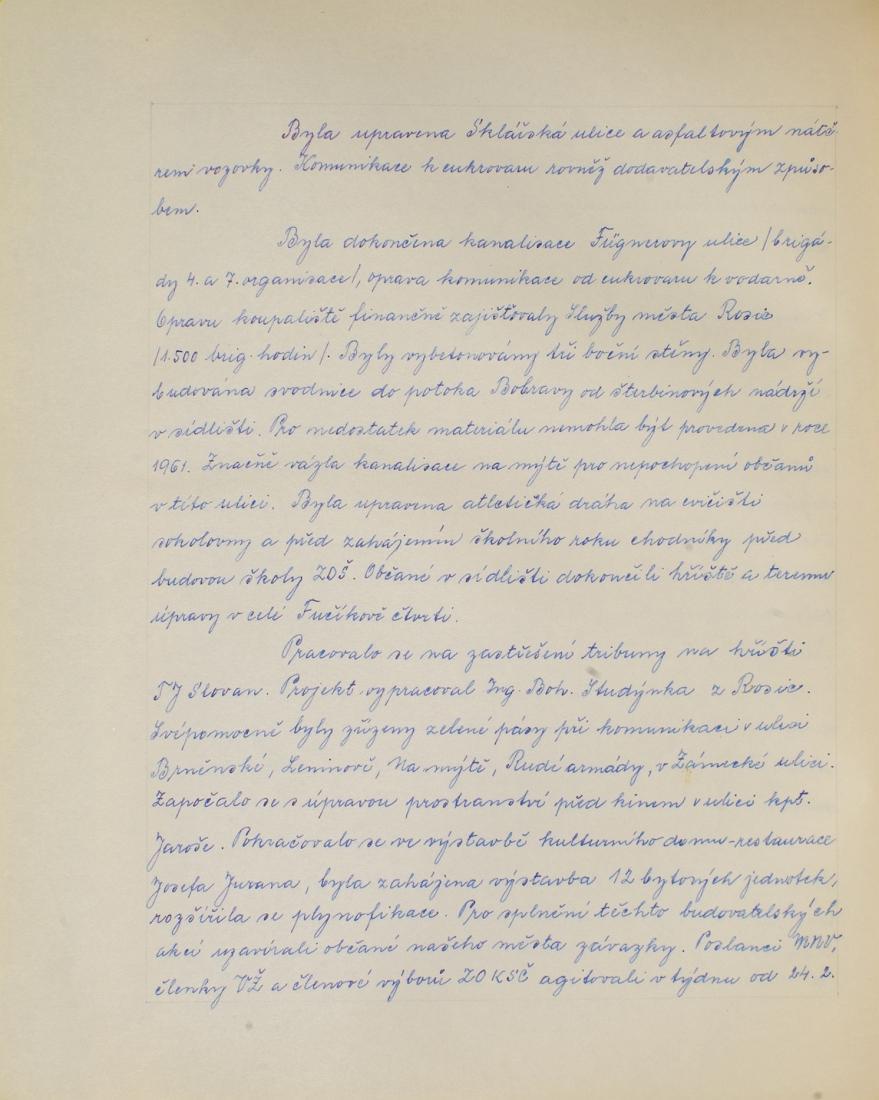 Byla upravena Sklářská ulice a asfaltovým nátě-
rem vozovky. Komunikace k cukrovaru rovněž dodavatelským způso-
bem.
Byla dokončena kanalisace Fügnerovy ulice /brigá-
dy 4. a 7. organisace/, oprava komunikace od cukrovaru k vodárně.
Opravu koupaliště finančně zajišťovaly Služby města Rosic
/1.500 brig. hodin/. Byly vybetonovány tři boční stěny. Byla vy-
budována svodnice do potoka Bobravy od šterbinových nádrží
v sídlišti. Pro nedostatek materiálu nemohla být provedena v roce
1961. Značně vázla kanalisace na mýtě pro nepochopení občanů
v této ulici. Byla upravena atletická dráha na cvičišti
sokolovny a před zahájením školního roku chodníky před
budovou školy ZDŠ. Občané v sídlišti dokončili hřiště a terenní
úpravy v celé Fučíkově čtvrti.
Pracovalo se na zastřešení tribuny na hřišti
TJ Slovan. Projekt vypracoval Ing. Boh. Studýnka z Rosic.
Svépomocně byly zřízeny zelené pásy při komunikaci v ulici
Brněnské, Leninově, Na mýtě, Rudé armády, v Zámecké ulici.
Započalo se s úpravou prostranství před kinem v ulici kpt.
Jaroše. Pokračovalo se ve výstavbě kulturního domu-restaurace
Josefa Jurana, byla zahájena výstavba 12 bytových jednotek,
rozšířila se plynofikace. Pro splnění těchto budovatelských
akcí uzavírali občané našeho města závazky. Poslanci MNV,
členky VŽ a členové výborů ZO KSČ agitovali v týdnu od 24. 2.